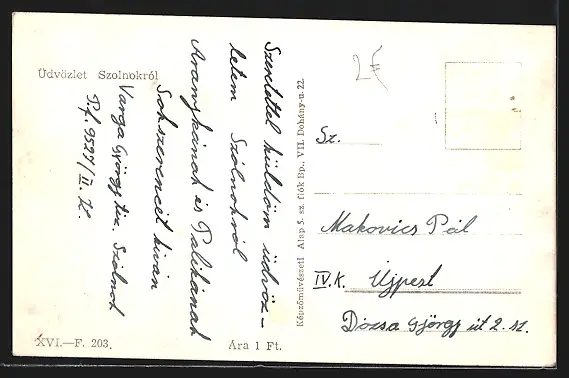 Üdvözlet Szolnokról
Szeretettel küldöm üdvöz-
letem Szolnokról
Aranykának és Palikának
Sokszerencét kiván
Varga György
Szolnok
Pf. 9527/II. K.
XVI.—F. 203.
Ára 1 Ft.
Képzőművészeti Alap 5. sz. fiók Bp., VII. Dohány-u. 22.
2€
Sz.
Makovics Pál
IV. K. Ujpest
Dózsa György út 2. sz.